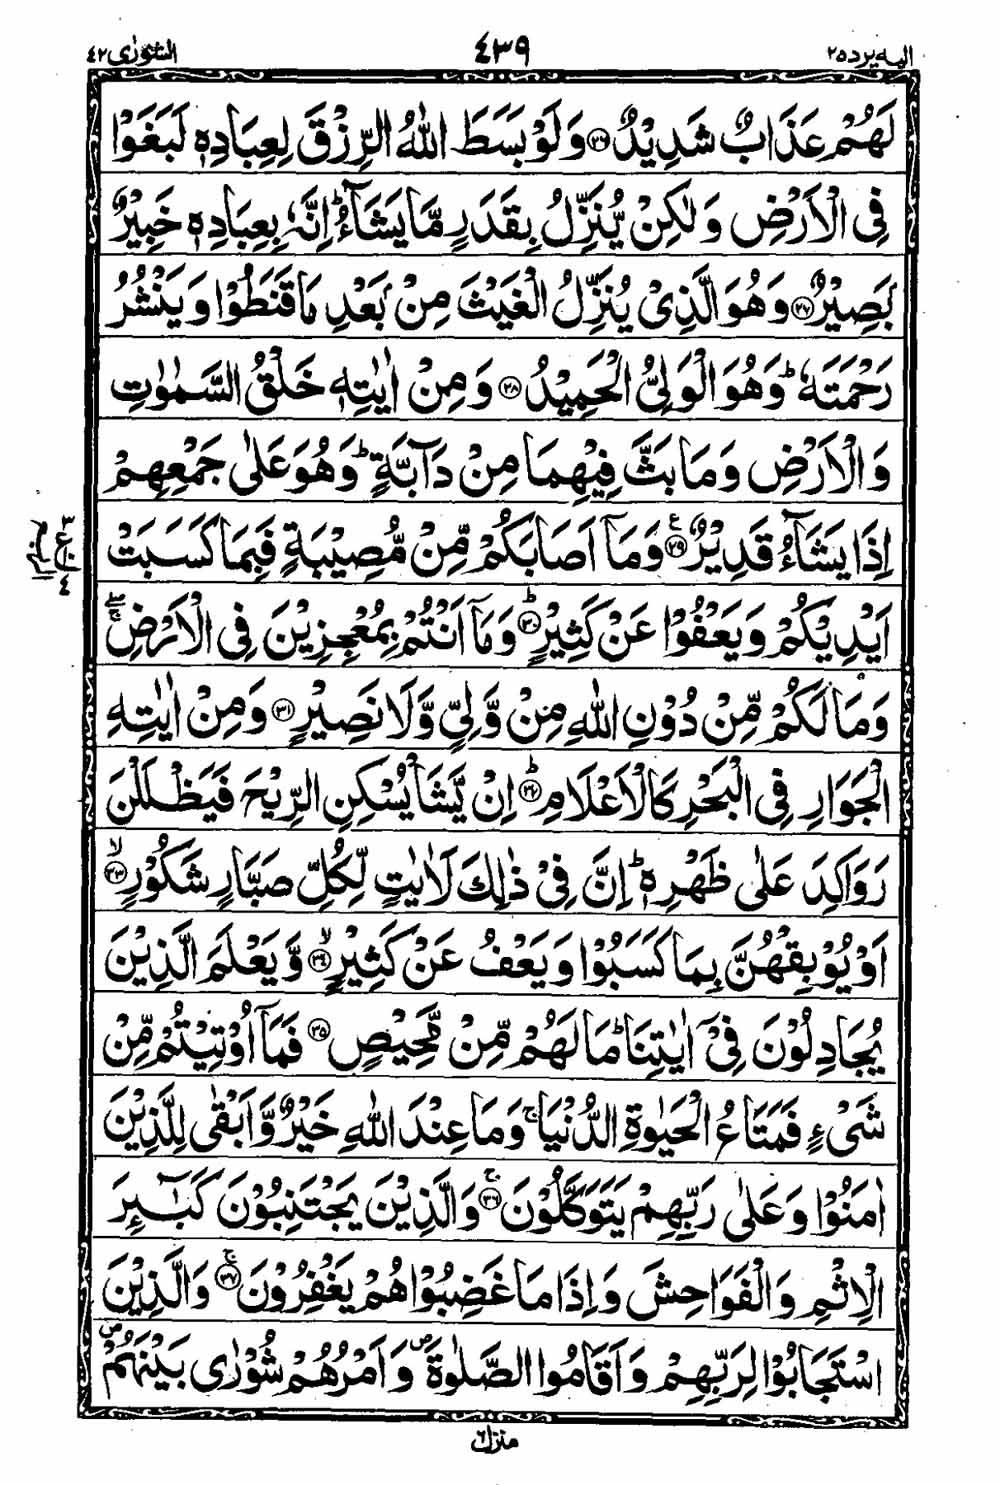 اليه يرد ٢٥
٤٣٩
الشورٰى ٤٢
لَهُمْ عَذَابٌ شَدِيْدٌ ﴿٢٦﴾ وَلَوْ بَسَطَ اللّٰهُ الرِّزْقَ لِعِبَادِهٖ لَبَغَوْا
فِى الْاَرْضِ وَلٰكِنْ يُّنَزِّلُ بِقَدَرٍ مَّا يَشَآءُ ؕ اِنَّهٗ بِعِبَادِهٖ خَبِيْرٌۢ
بَصِيْرٌ ﴿٢٧﴾ وَهُوَ الَّذِىْ يُنَزِّلُ الْغَيْثَ مِنْۢ بَعْدِ مَا قَنَطُوْا وَيَنْشُرُ
رَحْمَتَهٗ ؕ وَهُوَ الْوَلِىُّ الْحَمِيْدُ ﴿٢٨﴾ وَمِنْ اٰيٰتِهٖ خَلْقُ السَّمٰوٰتِ
وَالْاَرْضِ وَمَا بَثَّ فِيْهِمَا مِنْ دَآبَّةٍ ؕ وَهُوَ عَلٰى جَمْعِهِمْ
اِذَا يَشَآءُ قَدِيْرٌ ﴿٢٩﴾ ع وَمَاۤ اَصَابَكُمْ مِّنْ مُّصِيْبَةٍ فَبِمَا كَسَبَتْ
اَيْدِيْكُمْ وَيَعْفُوْا عَنْ كَثِيْرٍ ؕ ﴿٣٠﴾ وَمَاۤ اَنْتُمْ بِمُعْجِزِيْنَ فِى الْاَرْضِ ۖۚ
وَمَا لَكُمْ مِّنْ دُوْنِ اللّٰهِ مِنْ وَّلِىٍّ وَّلَا نَصِيْرٍ ﴿٣١﴾ وَمِنْ اٰيٰتِهِ
الْجَوَارِ فِى الْبَحْرِ كَالْاَعْلَامِ ؕ ﴿٣٢﴾ اِنْ يَّشَاْ يُسْكِنِ الرِّيْحَ فَيَظْلَلْنَ
رَوَاكِدَ عَلٰى ظَهْرِهٖ ؕ اِنَّ فِىْ ذٰلِكَ لَاٰيٰتٍ لِّكُلِّ صَبَّارٍ شَكُوْرٍ ۙ ﴿٣٣﴾
اَوْ يُوْبِقْهُنَّ بِمَا كَسَبُوْا وَيَعْفُ عَنْ كَثِيْرٍ ۙ ﴿٣٤﴾ وَّيَعْلَمَ الَّذِيْنَ
يُجَادِلُوْنَ فِىْۤ اٰيٰتِنَا ؕ مَا لَهُمْ مِّنْ مَّحِيْصٍ ﴿٣٥﴾ فَمَاۤ اُوْتِيْتُمْ مِّنْ
شَىْءٍ فَمَتَاعُ الْحَيٰوةِ الدُّنْيَا ۚ وَمَا عِنْدَ اللّٰهِ خَيْرٌ وَّاَبْقٰى لِلَّذِيْنَ
اٰمَنُوْا وَعَلٰى رَبِّهِمْ يَتَوَكَّلُوْنَ ۚ ﴿٣٦﴾ وَالَّذِيْنَ يَجْتَنِبُوْنَ كَبٰٓئِرَ
الْاِثْمِ وَالْفَوَاحِشَ وَاِذَا مَا غَضِبُوْا هُمْ يَغْفِرُوْنَ ۚ ﴿٣٧﴾ وَالَّذِيْنَ
اسْتَجَابُوْا لِرَبِّهِمْ وَاَقَامُوا الصَّلٰوةَ ۪ وَاَمْرُهُمْ شُوْرٰى بَيْنَهُمْ ۪
منزل ٦